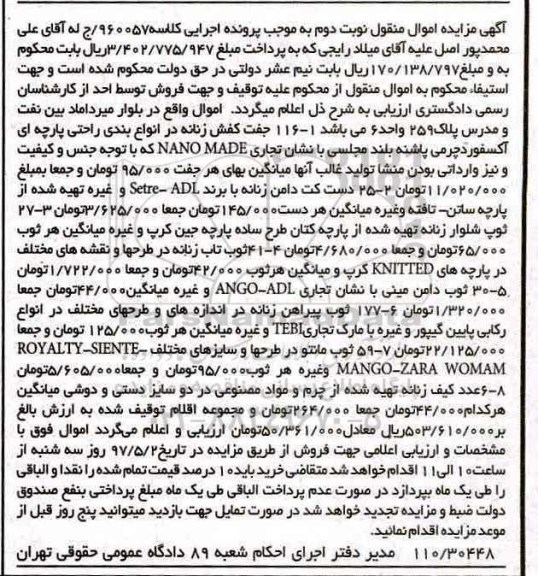 آگهی مزایده اموال منقول نوبت دوم به موجب پرونده اجرایی کلاسه۹۶۰۰۵۷/ج له آقای علی
محمدپور اصل علیه آقای میلاد رایجی که به پرداخت مبلغ ۳/۴۰۲/۷۷۵/۹۴۷ریال بابت محکوم
به و مبلغ۱۷۰/۱۳۸/۷۹۷ریال بابت نیم عشر دولتی در حق دولت محکوم شده است و جهت
استیفاء محکوم به اموال منقول از محکوم علیه توقیف و جهت فروش توسط احد از کارشناسان
رسمی دادگستری ارزیابی به شرح ذل اعلام میگردد. اموال واقع در بلوار میرداماد بین نفت
و مدرس پلاک۲۵۹ واحد۶ می باشد ۱-۱۱۶ جفت کفش زنانه در انواع بندی راحتی پارچه ای
آکسفوردچرمی پاشنه بلند مجلسی با نشان تجاری NANO MADE که با توجه جنس و کیفیت
و نیز وارداتی بودن منشا تولید غالب آنها میانگین بهای هر جفت ۹۵/۰۰۰ تومان و جمعا بمبلغ
۱۱/۰۲۰/۰۰۰تومان ۲-۲۵ دست کت دامن زنانه با برند Setre- ADL و غیره تهیه شده از
پارچه ساتن- تافته وغیره میانگین هر دست۱۴۵/۰۰۰تومان جمعا ۳/۶۲۵/۰۰۰تومان ۳-۲۷
ثوب شلوار زنانه تهیه شده از پارچه کتان طرح ساده پارچه جین کرپ و غیره میانگین هر ثوب
۶۵/۰۰۰تومان و جمعا ۴/۶۸۰/۰۰۰تومان ۴-۴۱ثوب تاپ زنانه در طرحها و نقشه های مختلف
در پارچه های KNITTED کرپ و میانگین هرثوب ۴۲/۰۰۰تومان و جمعا ۱/۷۲۲/۰۰۰تومان
۵-۳۰ ثوب دامن مینی با نشان تجاری ANGO-ADL و غیره میانگین۴۴/۰۰۰تومان جمعا
۱/۳۲۰/۰۰۰تومان ۶-۱۷۷ ثوب پیراهن زنانه در اندازه های و طرحهای مختلف در انواع
رکابی پایین گیپور و غیره با مارک تجاریTEBI و غیره میانگین هر ثوب۱۲۵/۰۰۰ تومان و جمعا
۲۲/۱۲۵/۰۰۰تومان ۷-۵۹ ثوب مانتو در طرحها و سایزهای مختلف ROYALTY-SIENTE-
MANGO-ZARA WOMAM وغیره هر ثوب۹۵/۰۰۰تومان و جمعا۵/۶۰۵/۰۰۰تومان
۸-۶عدد کیف زنانه تهیه شده از چرم و مواد مصنوعی در دو سایز دستی و دوشی میانگین
هرکدام۴۴/۰۰۰تومان جمعا ۲۶۴/۰۰۰تومان و مجموعه اقلام توقیف شده به ارزش بالغ
بر۵۰۳/۶۱۰/۰۰۰ریال معادل۵۰/۳۶۱/۰۰۰تومان ارزیابی و اعلام می‌گردد اموال فوق با
مشخصات و ارزیابی اعلامی جهت فروش از طریق مزایده در تاریخ۹۷/۵/۲ روز سه شنبه از
ساعت۱۰ الی۱۱ اقدام خواهد شد متقاضی خرید باید۱۰ درصد قیمت تمام شده را نقدا و الباقی
را طی یک ماه بپردازد در صورت عدم پرداخت الباقی طی یک ماه مبلغ پرداختی بنفع صندوق
دولت ضبط و مزایده تجدید خواهد شد در صورت تمایل جهت بازدید میتوانید پنج روز قبل از
موعد مزایده اقدام نمائید.
۱۱۰/۳۰۴۴۸ مدیر دفتر اجرای احکام شعبه ۸۹ دادگاه عمومی حقوقی تهران